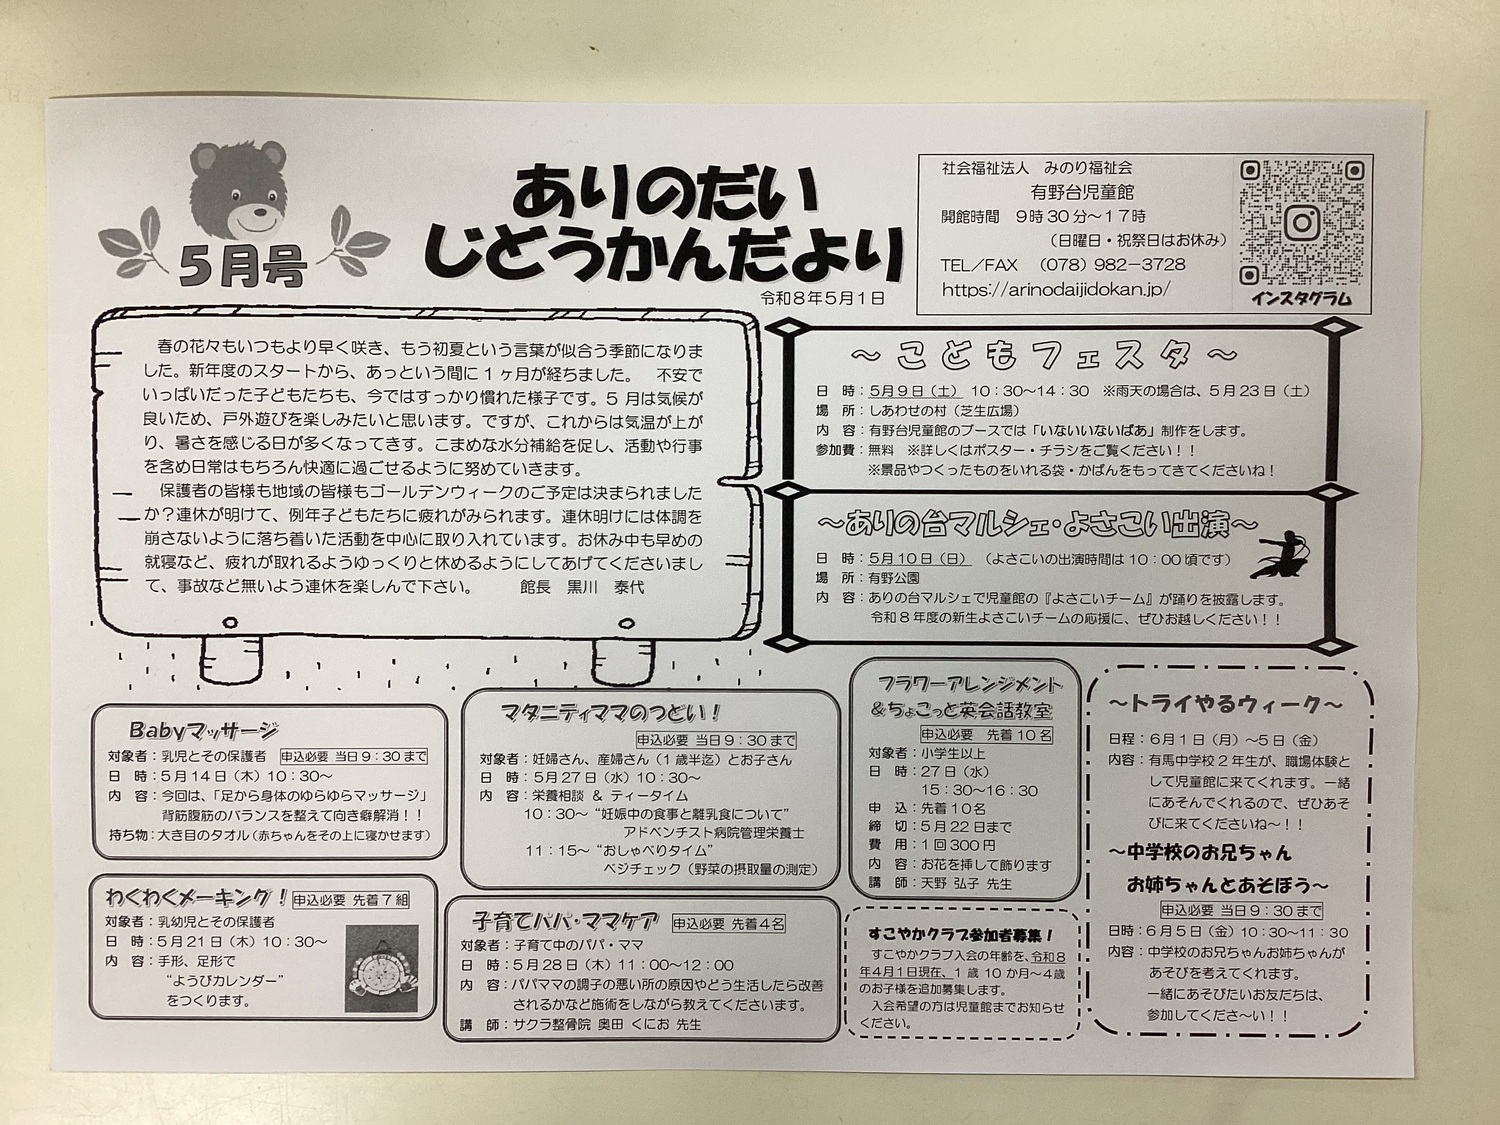 5月号
ありのだい
じどうかんだより
令和8年5月1日
社会福祉法人 みのり福祉会
有野台児童館
開館時間 9時30分～17時
(日曜日・祝祭日はお休み)
TEL/FAX (078) 982-3728
https://arinodaijidokan.jp/
インスタグラム
春の花々もいつもより早く咲き、もう初夏という言葉が似合う季節になりま
した。新年度のスタートから、あっという間に1ヶ月が経ちました。 不安で
いっぱいだった子どもたちも、今ではすっかり慣れた様子です。5月は気候が
良いため、戸外遊びを楽しみたいと思います。ですが、これからは気温が上が
り、暑さを感じる日が多くなってきます。こまめな水分補給を促し、活動や行事
を含め日常はもちろん快適に過ごせるように努めていきます。
保護者の皆様も地域の皆様もゴールデンウィークのご予定は決まられました
か?連休が明けて、例年子どもたちに疲れがみられます。連休明けには体調を
崩さないように落ち着いた活動を中心に取り入れています。お休み中も早めの
就寝など、疲れが取れるようゆっくりと休めるようにしてあげてくださいまし
て、事故など無いよう連休を楽しんで下さい。 館長 黒川 泰代
～こどもフェスタ～
日 時：5月9日(土) 10：30～14：30 ※雨天の場合は、5月23日(土)
場 所：しあわせの村(芝生広場)
内 容：有野台児童館のブースでは「いないいないばあ」制作をします。
参加費：無料 ※詳しくはポスター・チラシをご覧ください！！
※景品やつくったものをいれる袋・かばんをもってきてくださいね！
～ありの台マルシェ・よさこい出演～
日 時：5月10日(日) (よさこいの出演時間は10：00頃です)
場 所：有野公園
内 容：ありの台マルシェで児童館の『よさこいチーム』が踊りを披露します。
令和8年度の新生よさこいチームの応援に、ぜひお越しください！！
Babyマッサージ
対象者：乳児とその保護者 申込必要 当日9：30まで
日 時：5月14日(木) 10：30～
内 容：今回は、「足から身体のゆらゆらマッサージ」
背筋腹筋のバランスを整えて向き癖解消！！
持ち物：大き目のタオル(赤ちゃんをその上に寝かせます)
わくわくメーキング！ 申込必要 先着7組
対象者：乳幼児とその保護者
日 時：5月21日(木) 10：30～
内 容：手形、足形で
“ようびカレンダー”
をつくります。
マタニティママのつどい！
申込必要 当日9：30まで
対象者：妊婦さん、産婦さん(1歳半迄)とお子さん
日 時：5月27日(水) 10：30～
内 容：栄養相談 & ティータイム
10：30～ “妊娠中の食事と離乳食について”
アドベンチスト病院管理栄養士
11：15～ “おしゃべりタイム”
ベジチェック(野菜の摂取量の測定)
子育てパパ・ママケア 申込必要 先着4名
対象者：子育て中のパパ・ママ
日 時：5月28日(木) 11：00～12：00
内 容：パパママの調子の悪い所の原因やどう生活したら改善
されるかなど施術をしながら教えてくださいます。
講 師：サクラ整骨院 奥田 くにお 先生
フラワーアレンジメント
&ちょこっと英会話教室
申込必要 先着10名
対象者：小学生以上
日 時：27日(水)
15：30～16：30
申 込：先着10名
締 切：5月22日まで
費 用：1回300円
内 容：お花を挿して飾ります
講 師：天野 弘子 先生
すこやかクラブ参加者募集！
すこやかクラブ入会の年齢を、令和8
年4月1日現在、1歳10か月～4歳
のお子様を追加募集します。
入会希望の方は児童館までお知らせ
ください。
～トライやるウィーク～
日程：6月1日(月)～5日(金)
内容：有馬中学校2年生が、職場体験と
して児童館に来てくれます。一緒
にあそんでくれるので、ぜひあそ
びに来てくださいね～！！
～中学校のお兄ちゃん
お姉ちゃんとあそぼう～
申込必要 当日9：30まで
日時：6月5日(金) 10：30～11：30
内容：中学校のお兄ちゃんお姉ちゃんが
あそびを考えてくれます。
一緒にあそびたいお友だちは、
参加してくださ～い！！